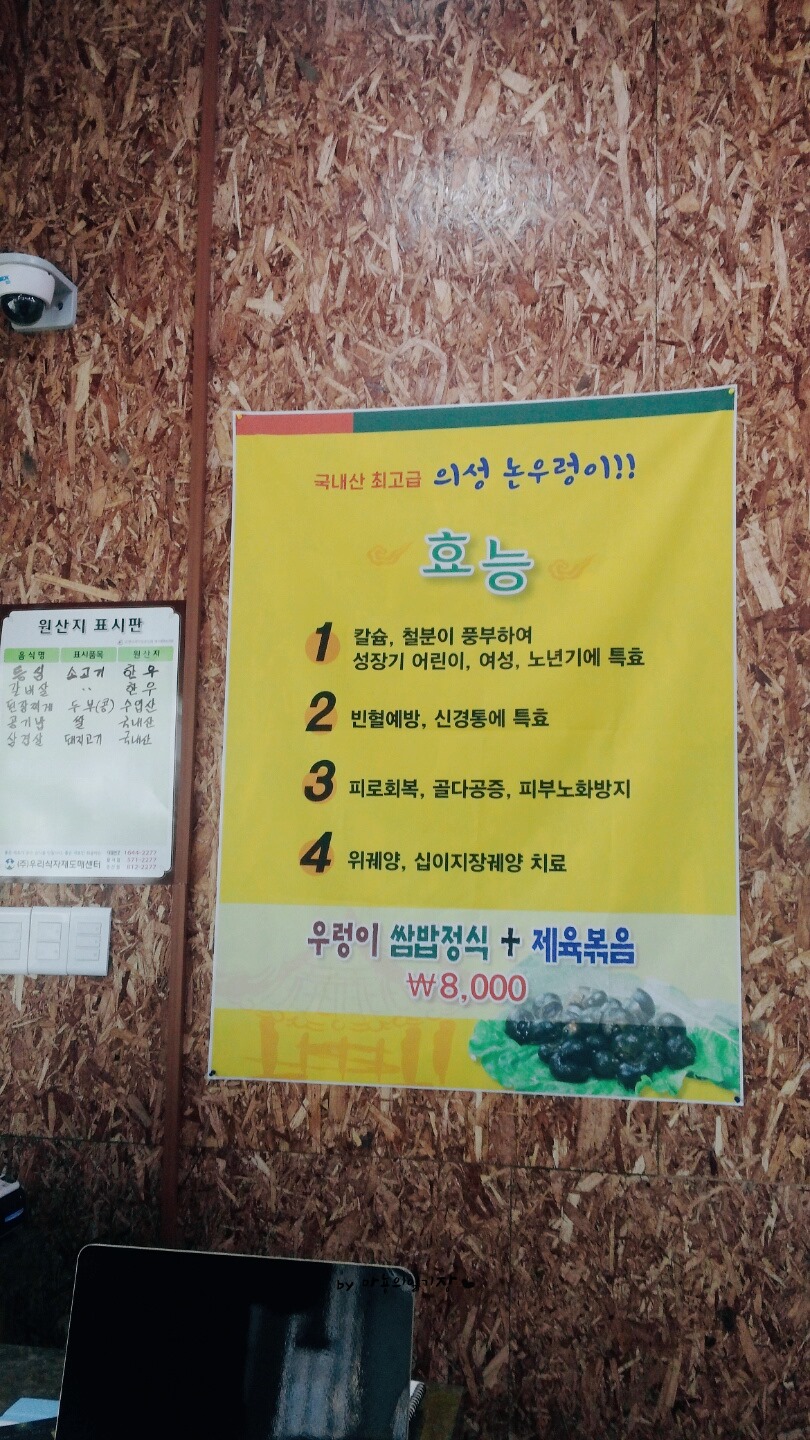 국내산 최고급 의성 논우렁이!!
효능
1 칼슘, 철분이 풍부하여
성장기 어린이, 여성, 노년기에 특효
2 빈혈예방, 신경통에 특효
3 피로회복, 골다공증, 피부노화방지
4 위궤양, 십이지장궤양 치료
우렁이 쌈밥정식 + 제육볶음
₩8,000
원산지 표시판
음식명 표시품목 원산지
등심 소고기 한우
갈비살 〃 한우
된장찌개 두부(콩) 수입산
공기밥 쌀 국내산
삼겹살 돼지고기 국내산
1644-2277
371-2277
(주)우리식자재도매센터 612-2277
by